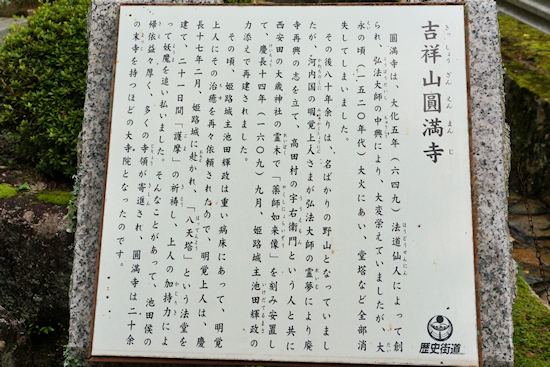 吉祥山圓満寺
きっしょうざんえんまんじ
圓満寺は、大化五年（六四九）法道仙人によって創
られ、弘法大師の中興により、大変栄えていましたが、大
永の頃（一五二〇年代）大火にあい、堂塔など全部消
失してしまいました。
その後八十年余りは、名ばかりの野山となっていまし
たが、河内国の明覚上人さまが弘法大師の霊夢により廃
寺再興の志を立て、高田村の宇右衛門という人と共に
西安田の大歳神社の霊木で「薬師如来像」を刻み安置し
て、慶長十四年（一六〇九）九月、姫路城主池田輝政の
力添えで再建されました。
その頃、姫路城主池田輝政は重い病床にあって、明覚
上人にその治癒を再々依頼されたので、明覚上人は、慶
長十七年二月、姫路城に赴かれ、「八天塔」という法堂を
建て、二十一日間「護摩」の祈祷し、上人の加持力によ
って妖魔を追い払いました。そんなことがあって、池田侯の
帰依益々厚く、多くの寺領が寄進され、圓満寺は二十余
の末寺を持つほどの大寺院となったのです。
歴史街道